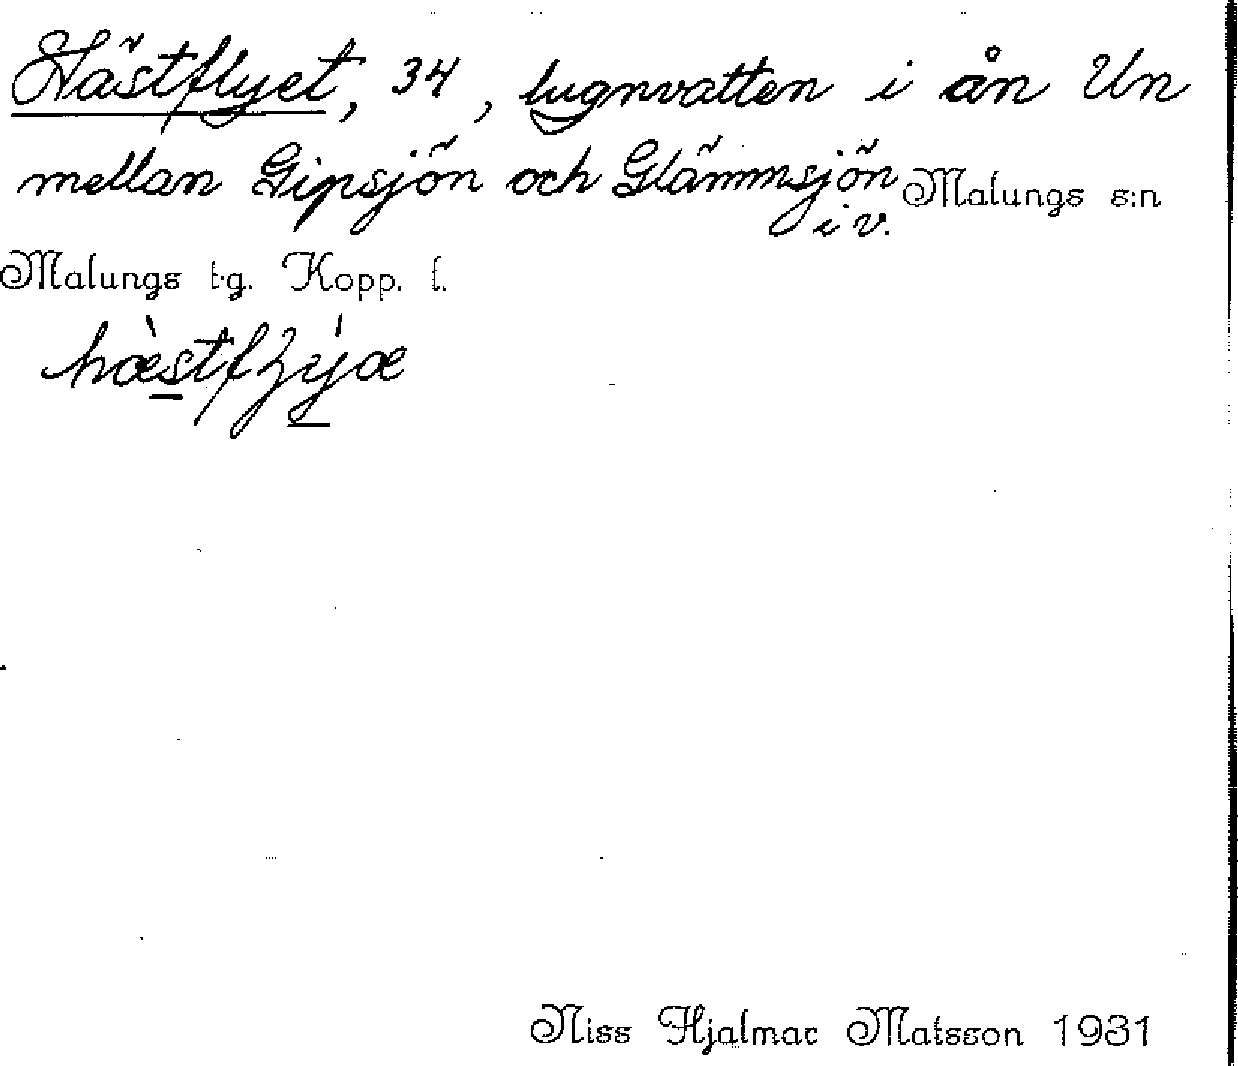 Hästflyet, 34, lugnvatten i ån Un
mellan Gipsjön och Glämmsjön Malungs s:n
i v.
Malungs t.g. Kopp. l.
Niss Hjalmar Matsson 1931